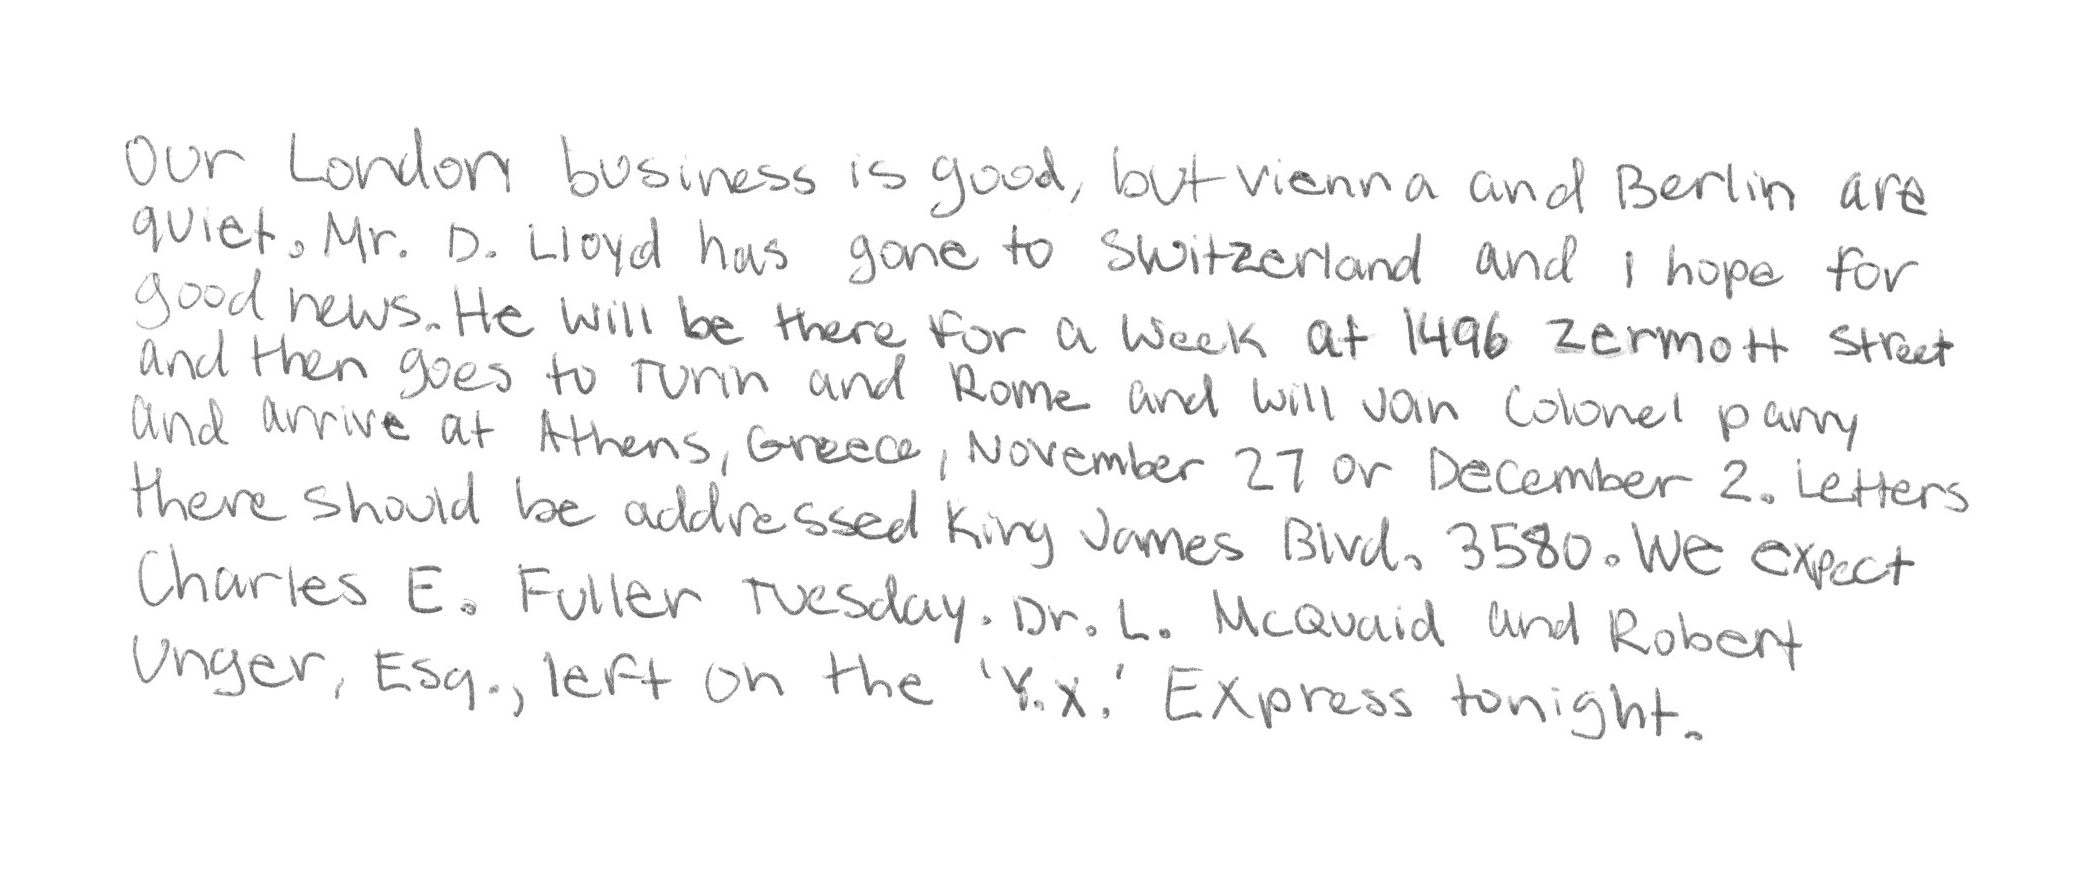 Our London business is good, but vienna and Berlin are
quiet. Mr. D. Lloyd has gone to Switzerland and I hope for
good news. He will be there for a week at 1496 Zermott Street
and then goes to Turin and Rome and will join Colonel parry
and arrive at Athens, Greece, November 27 or December 2. Letters
there should be addressed King James Blvd. 3580. We expect
Charles E. Fuller Tuesday. Dr. L. McQuaid and Robert
Unger, Esq., left on the 'Y.X.' Express tonight.